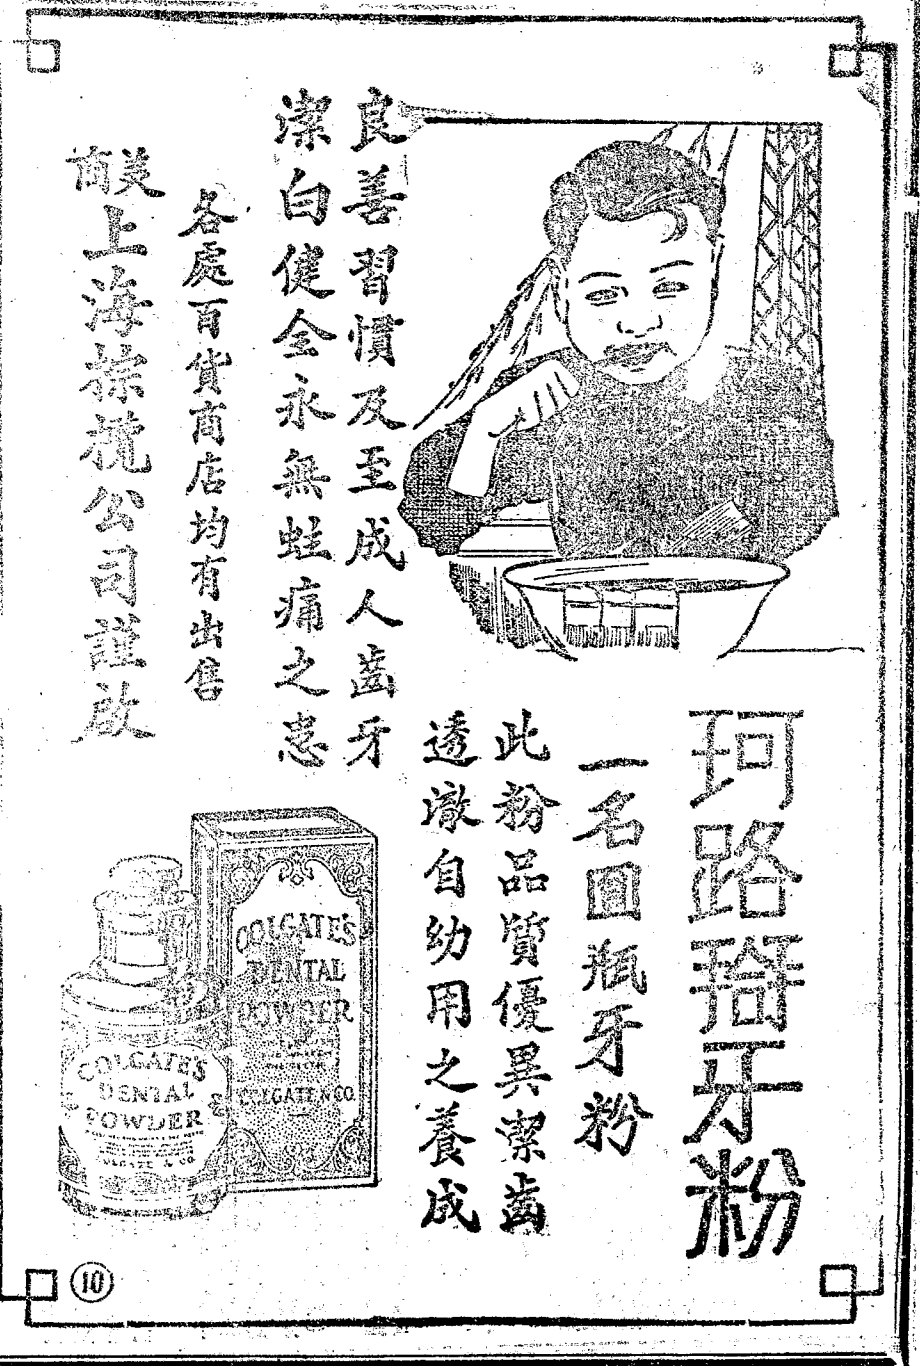 珂路搿牙粉
一名圓瓶牙粉
此粉品質優異潔齒
透澈自幼用之養成
良善習慣及至成人齒牙
潔白健全永無蛀痛之患
各處百貨商店均有出售
美商上海棕欖公司謹啟
COLGATE'S
DENTAL
POWDER
COLGATE & CO.
COLGATE'S
DENTAL
POWDER
COLGATE & CO
10